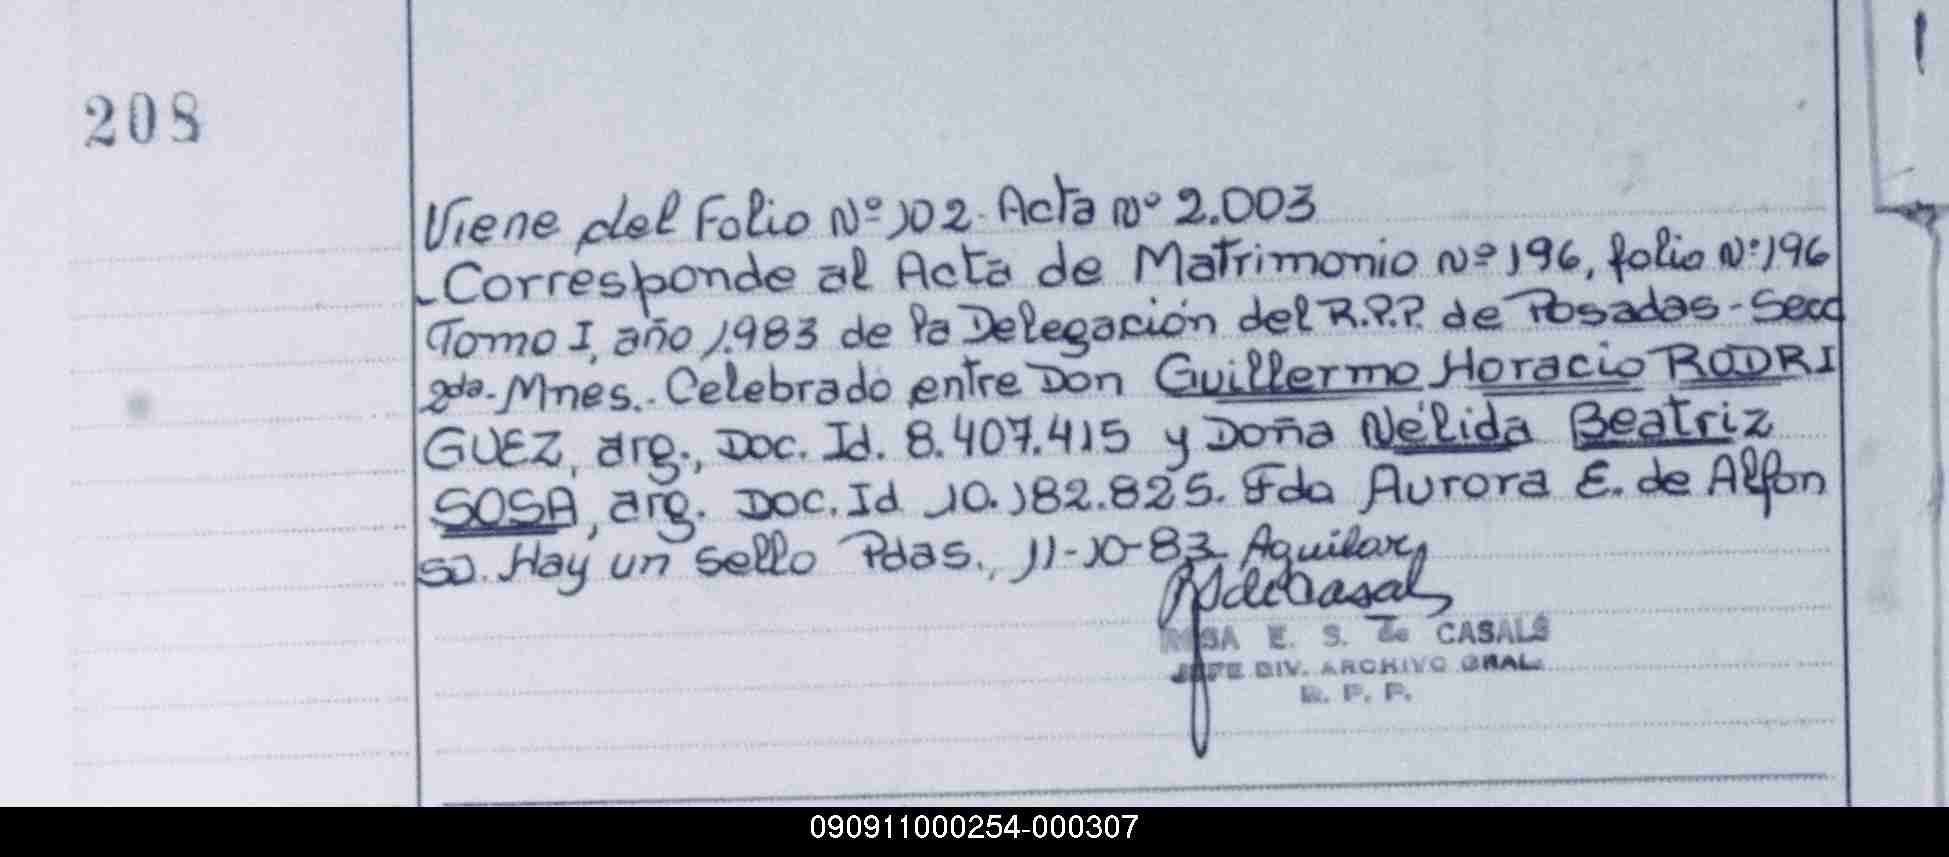 208
Viene del Folio Nº 102. Acta nº 2.003
-Corresponde al Acta de Matrimonio Nº 196, folio Nº 196
Tomo I, año 1.983 de la Delegación del R.P.P. de Posadas - Secc
2da. Mnes.. Celebrado entre Don Guillermo Horacio RODRI
GUEZ, arg., Doc. Id. 8.407.415 y Doña Nélida Beatriz
SOSA, arg. Doc. Id 10.182.825. Fdo Aurora E. de Alfon
so. Hay un sello Pdas., 11-10-83 Aguilar
ROSA E. S. de CASALS
JEFE DIV. ARCHIVO GRAL.
R. P. P.
090911000254-000307